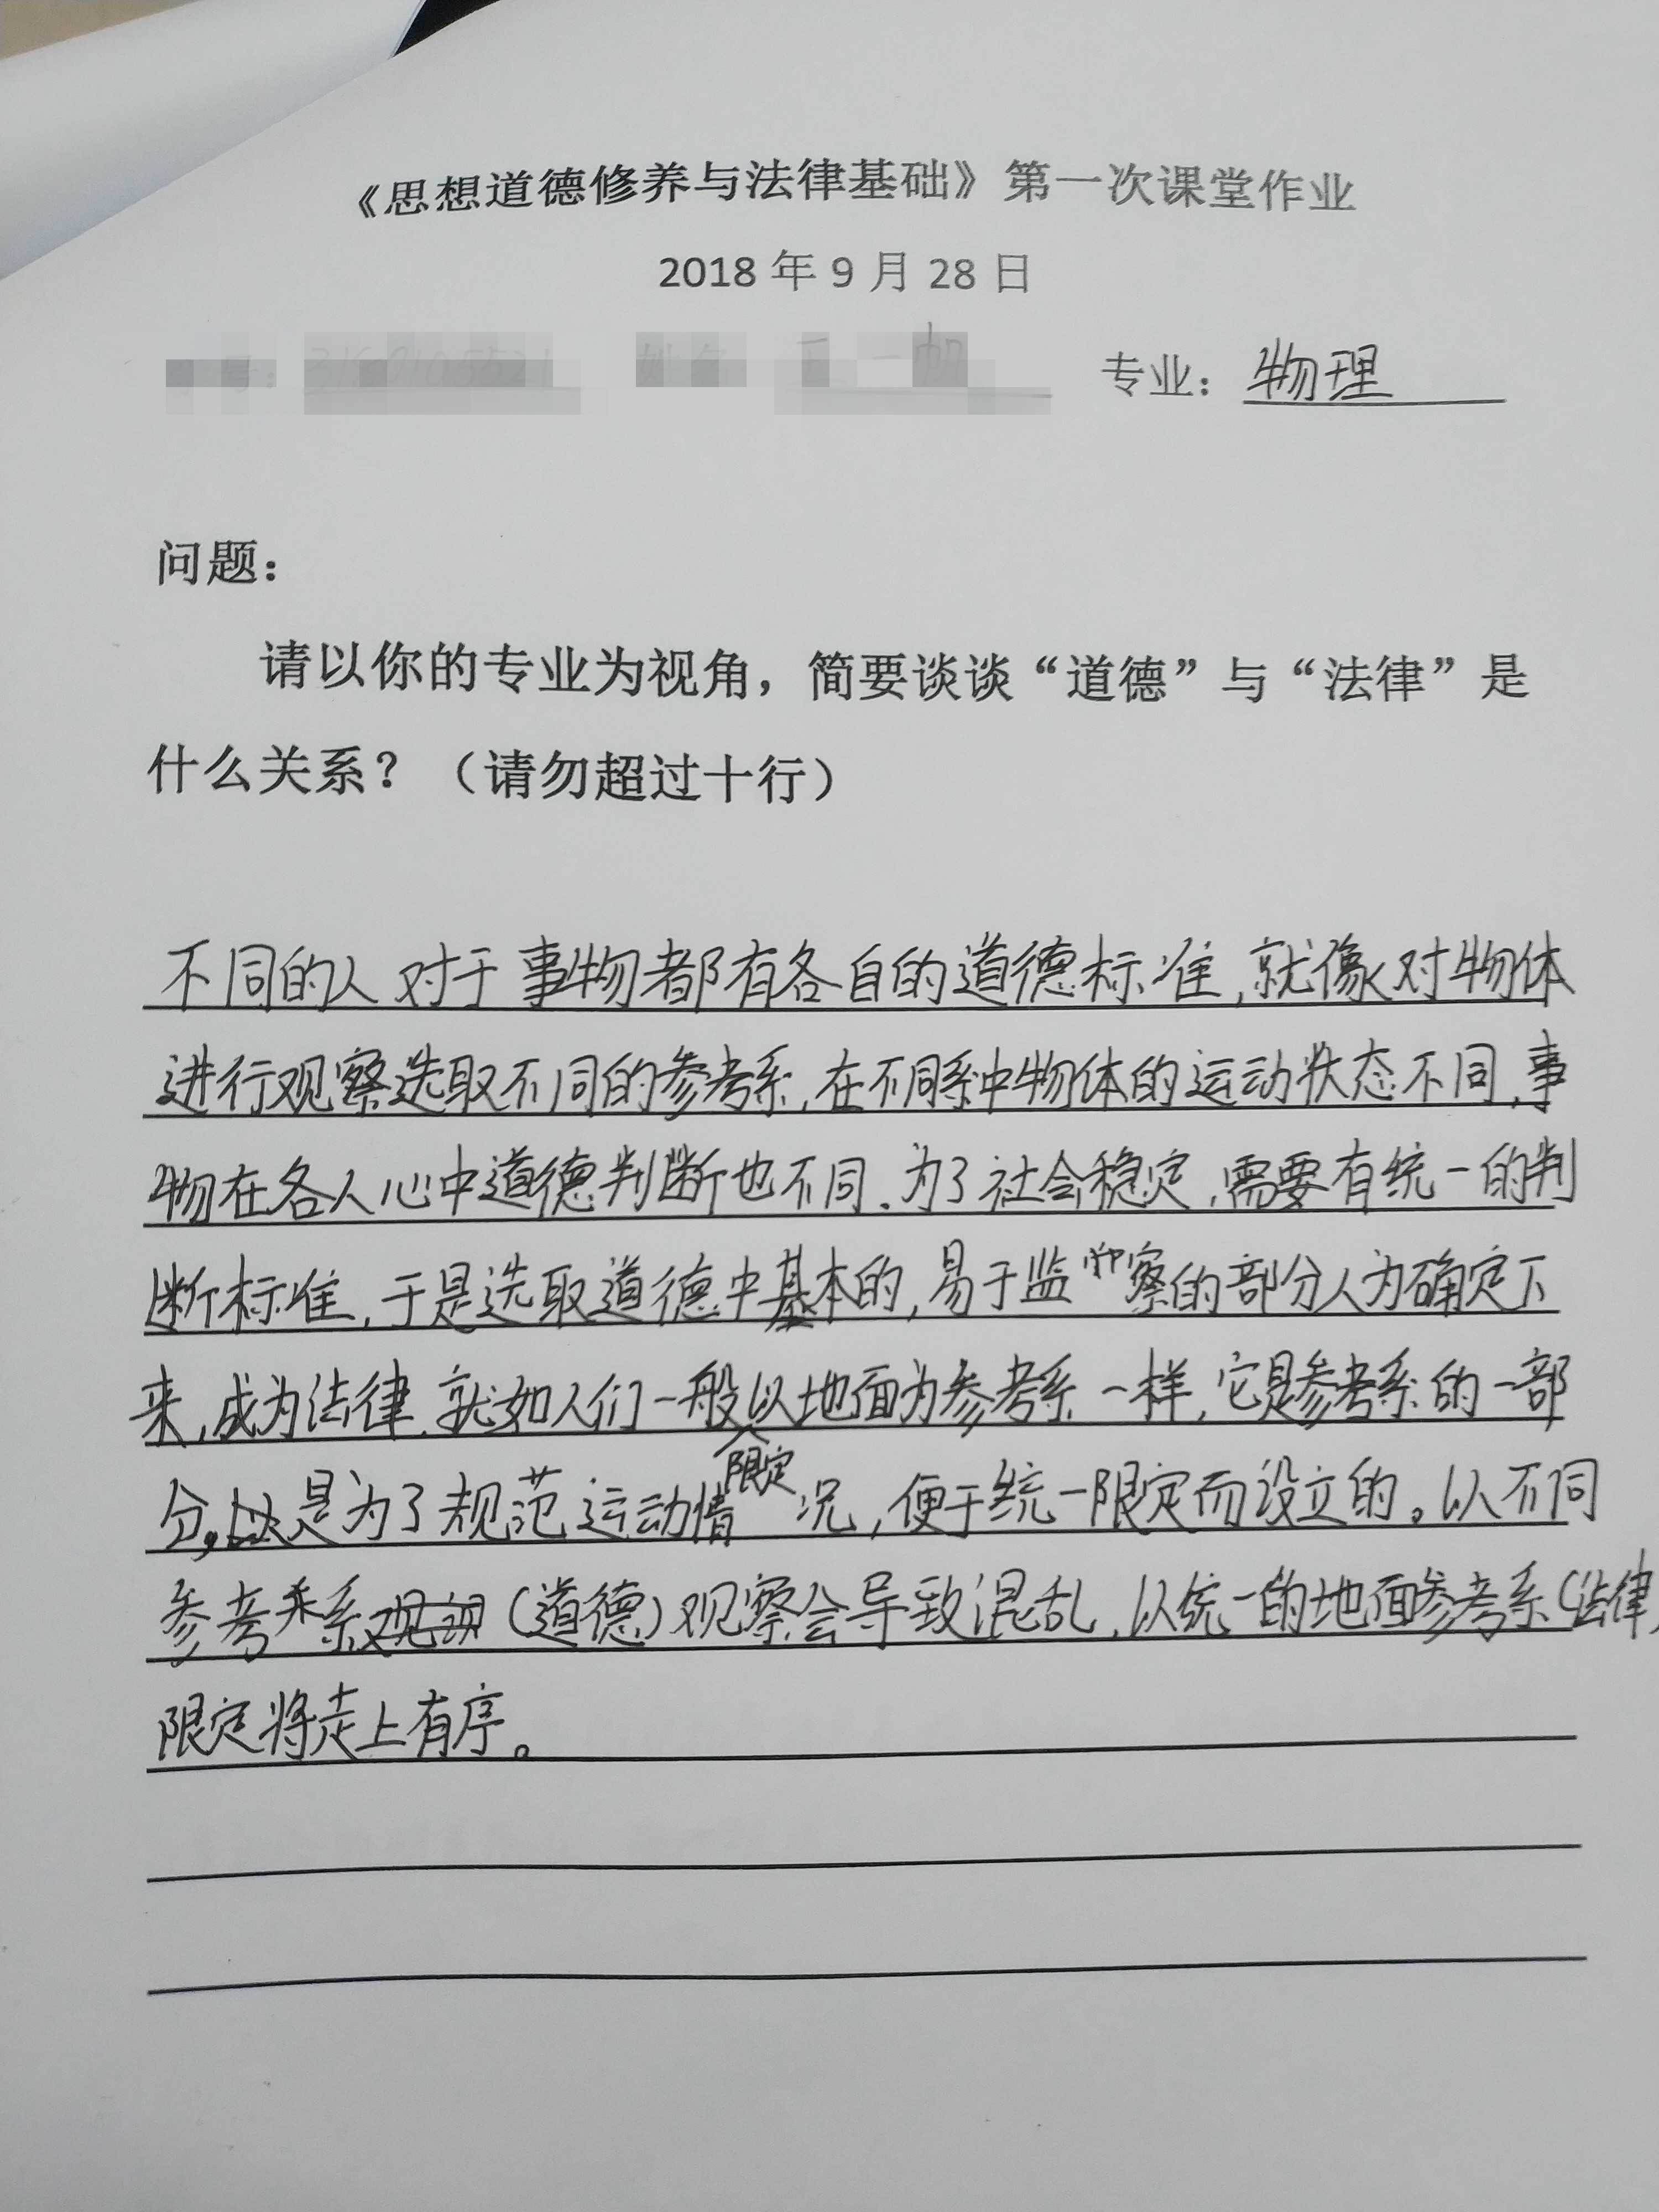 《思想道德修养与法律基础》第一次课堂作业
2018 年 9 月 28 日
专业：物理
问题：
请以你的专业为视角，简要谈谈“道德”与“法律”是
什么关系？（请勿超过十行）
不同的人对于事物都有各自的道德标准,就像对物体
进行观察选取不同的参考系,在不同系中物体的运动状态不同,事
物在各人心中道德判断也不同.为了社会稳定,需要有统一的判
断标准,于是选取道德中基本的,易于监察的部分人为确定下
来,成为法律.就如人们一般以地面为参考系一样,它是参考系的一部
限定
分,是为了规范运动情况,便于统一限定而设立的。以不同
参考系(道德)观察会导致混乱,以统一的地面参考系(法律)
限定将走上有序。